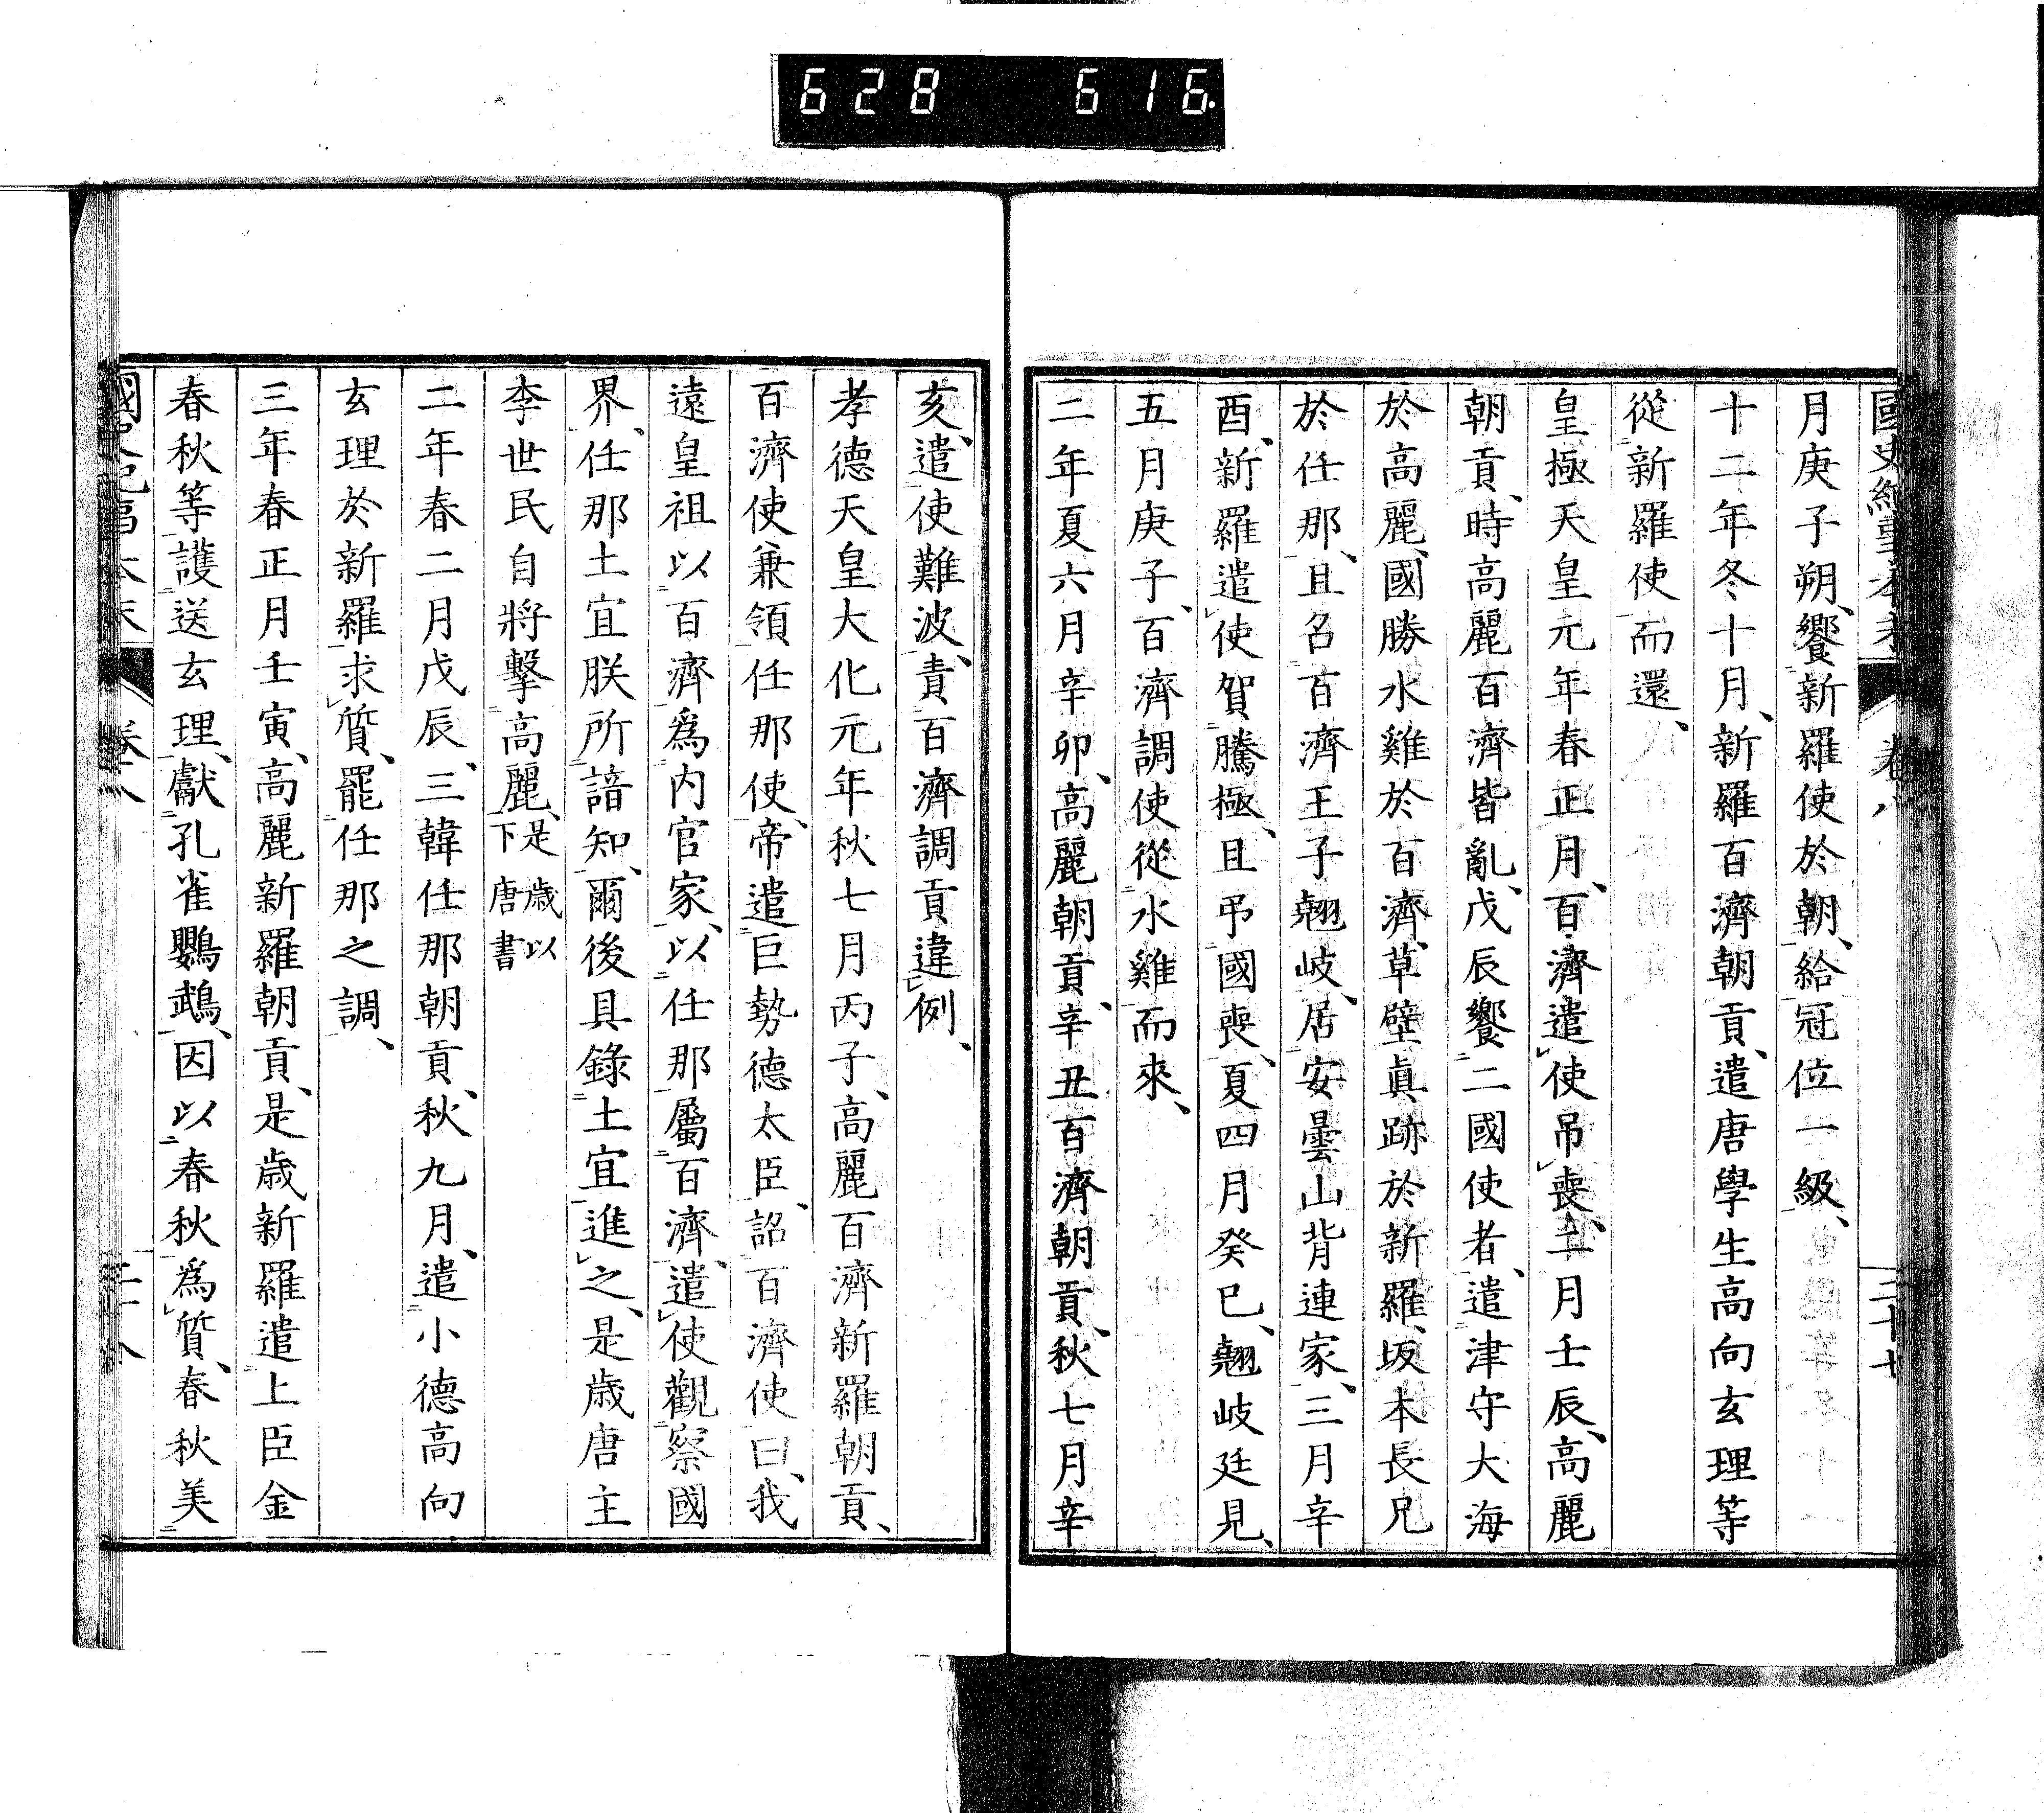 628 616
月庚子朔、饗新羅使於朝、給冠位一級、
十二年冬十月、新羅百濟朝貢、遣唐學生高向玄理等
從新羅使而還、
皇極天皇元年春正月、百濟遣使吊喪、二月壬辰、高麗
朝貢、時高麗百濟皆亂、戊辰饗二國使者、遣津守大海
於高麗、國勝水雞於百濟、草壁眞跡於新羅、坂本長兄
於任那、且召百濟王子翹岐、居安曇山背連家、三月辛
酉、新羅遣使賀騰極、且弔國喪、夏四月癸巳、翹岐廷見、
五月庚子、百濟調使從水雞而來、
二年夏六月辛卯、高麗朝貢、辛丑百濟朝貢、秋七月辛
亥、遣使難波、責百濟調貢違例、
孝德天皇大化元年秋七月丙子、高麗百濟新羅朝貢、
百濟使兼領任那使、帝遣巨勢德太臣、詔百濟使曰、我
遠皇祖以百濟爲内官家、以任那屬百濟、遣使觀察國
界、任那土宜朕所諳知、爾後具錄土宜進之、是歲唐主
李世民自將擊高麗、是歲以下唐書
二年春二月戊辰、三韓任那朝貢、秋九月、遣小德高向
玄理於新羅求質、罷任那之調、
三年春正月壬寅、高麗新羅朝貢、是歲新羅遣上臣金
春秋等護送玄理、獻孔雀鸚鵡、因以春秋爲質、春秋美